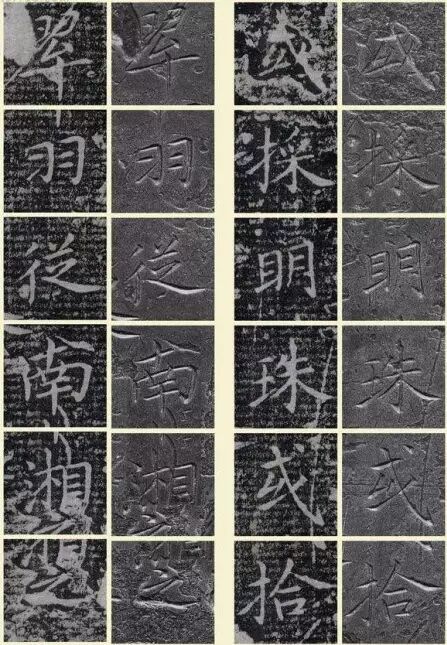 或採明珠或拾
或採明珠或拾
翠羽從南湘之
翠羽從南湘之